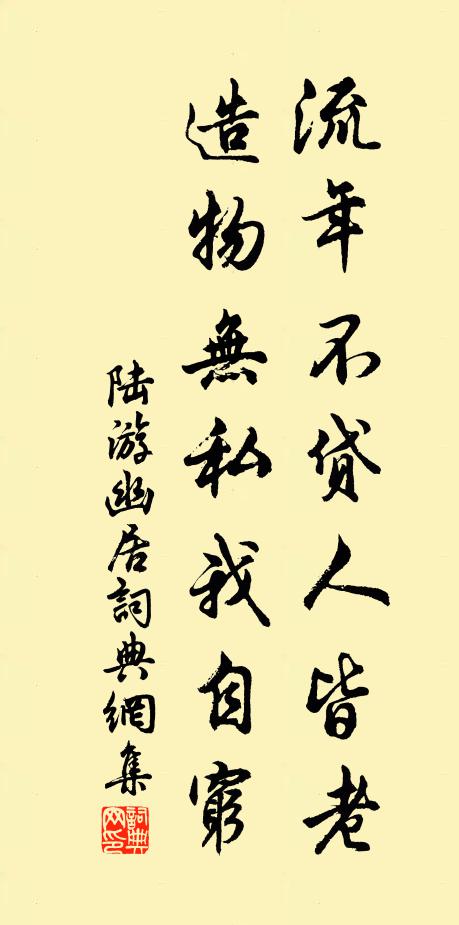 流年不貸人皆老
造物無私我自窮
陸游幽居詞典網集
詞典网印